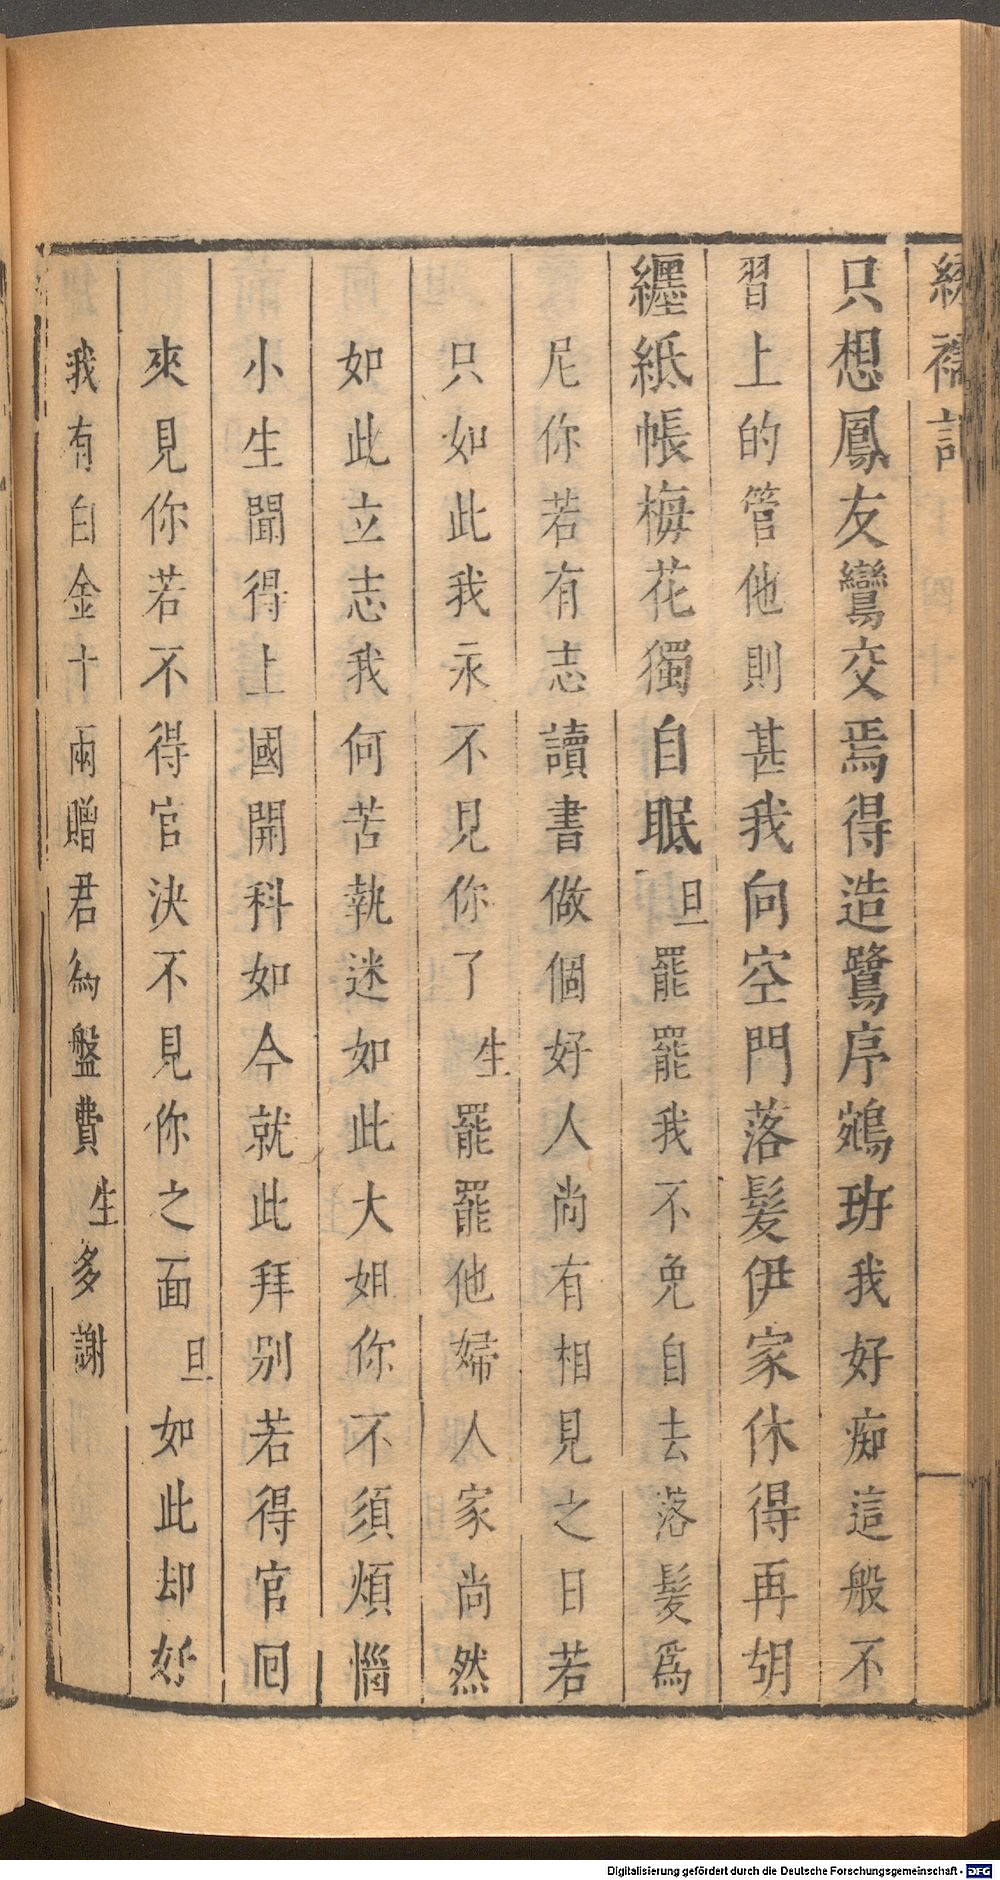 繡襦記
只想鳳友鸞交焉得造鷺序鵷班我好痴這般不
習上的管他則甚我向空門落髮伊家休得再胡
纒紙帳梅花獨自眠旦罷罷我不免自去落髮爲
尼你若有志讀書做個好人尚有相見之日若
只如此我永不見你了生罷罷他婦人家尚然
如此立志我何苦執迷如此大姐你不須煩惱
小生聞得上國開科如今就此拜别若得官囘
來見你若不得官決不見你之面旦如此却好
我有白金十兩贈君為盤費生多謝
Digitalisierung gefördert durch die Deutsche Forschungsgemeinschaft - DFG